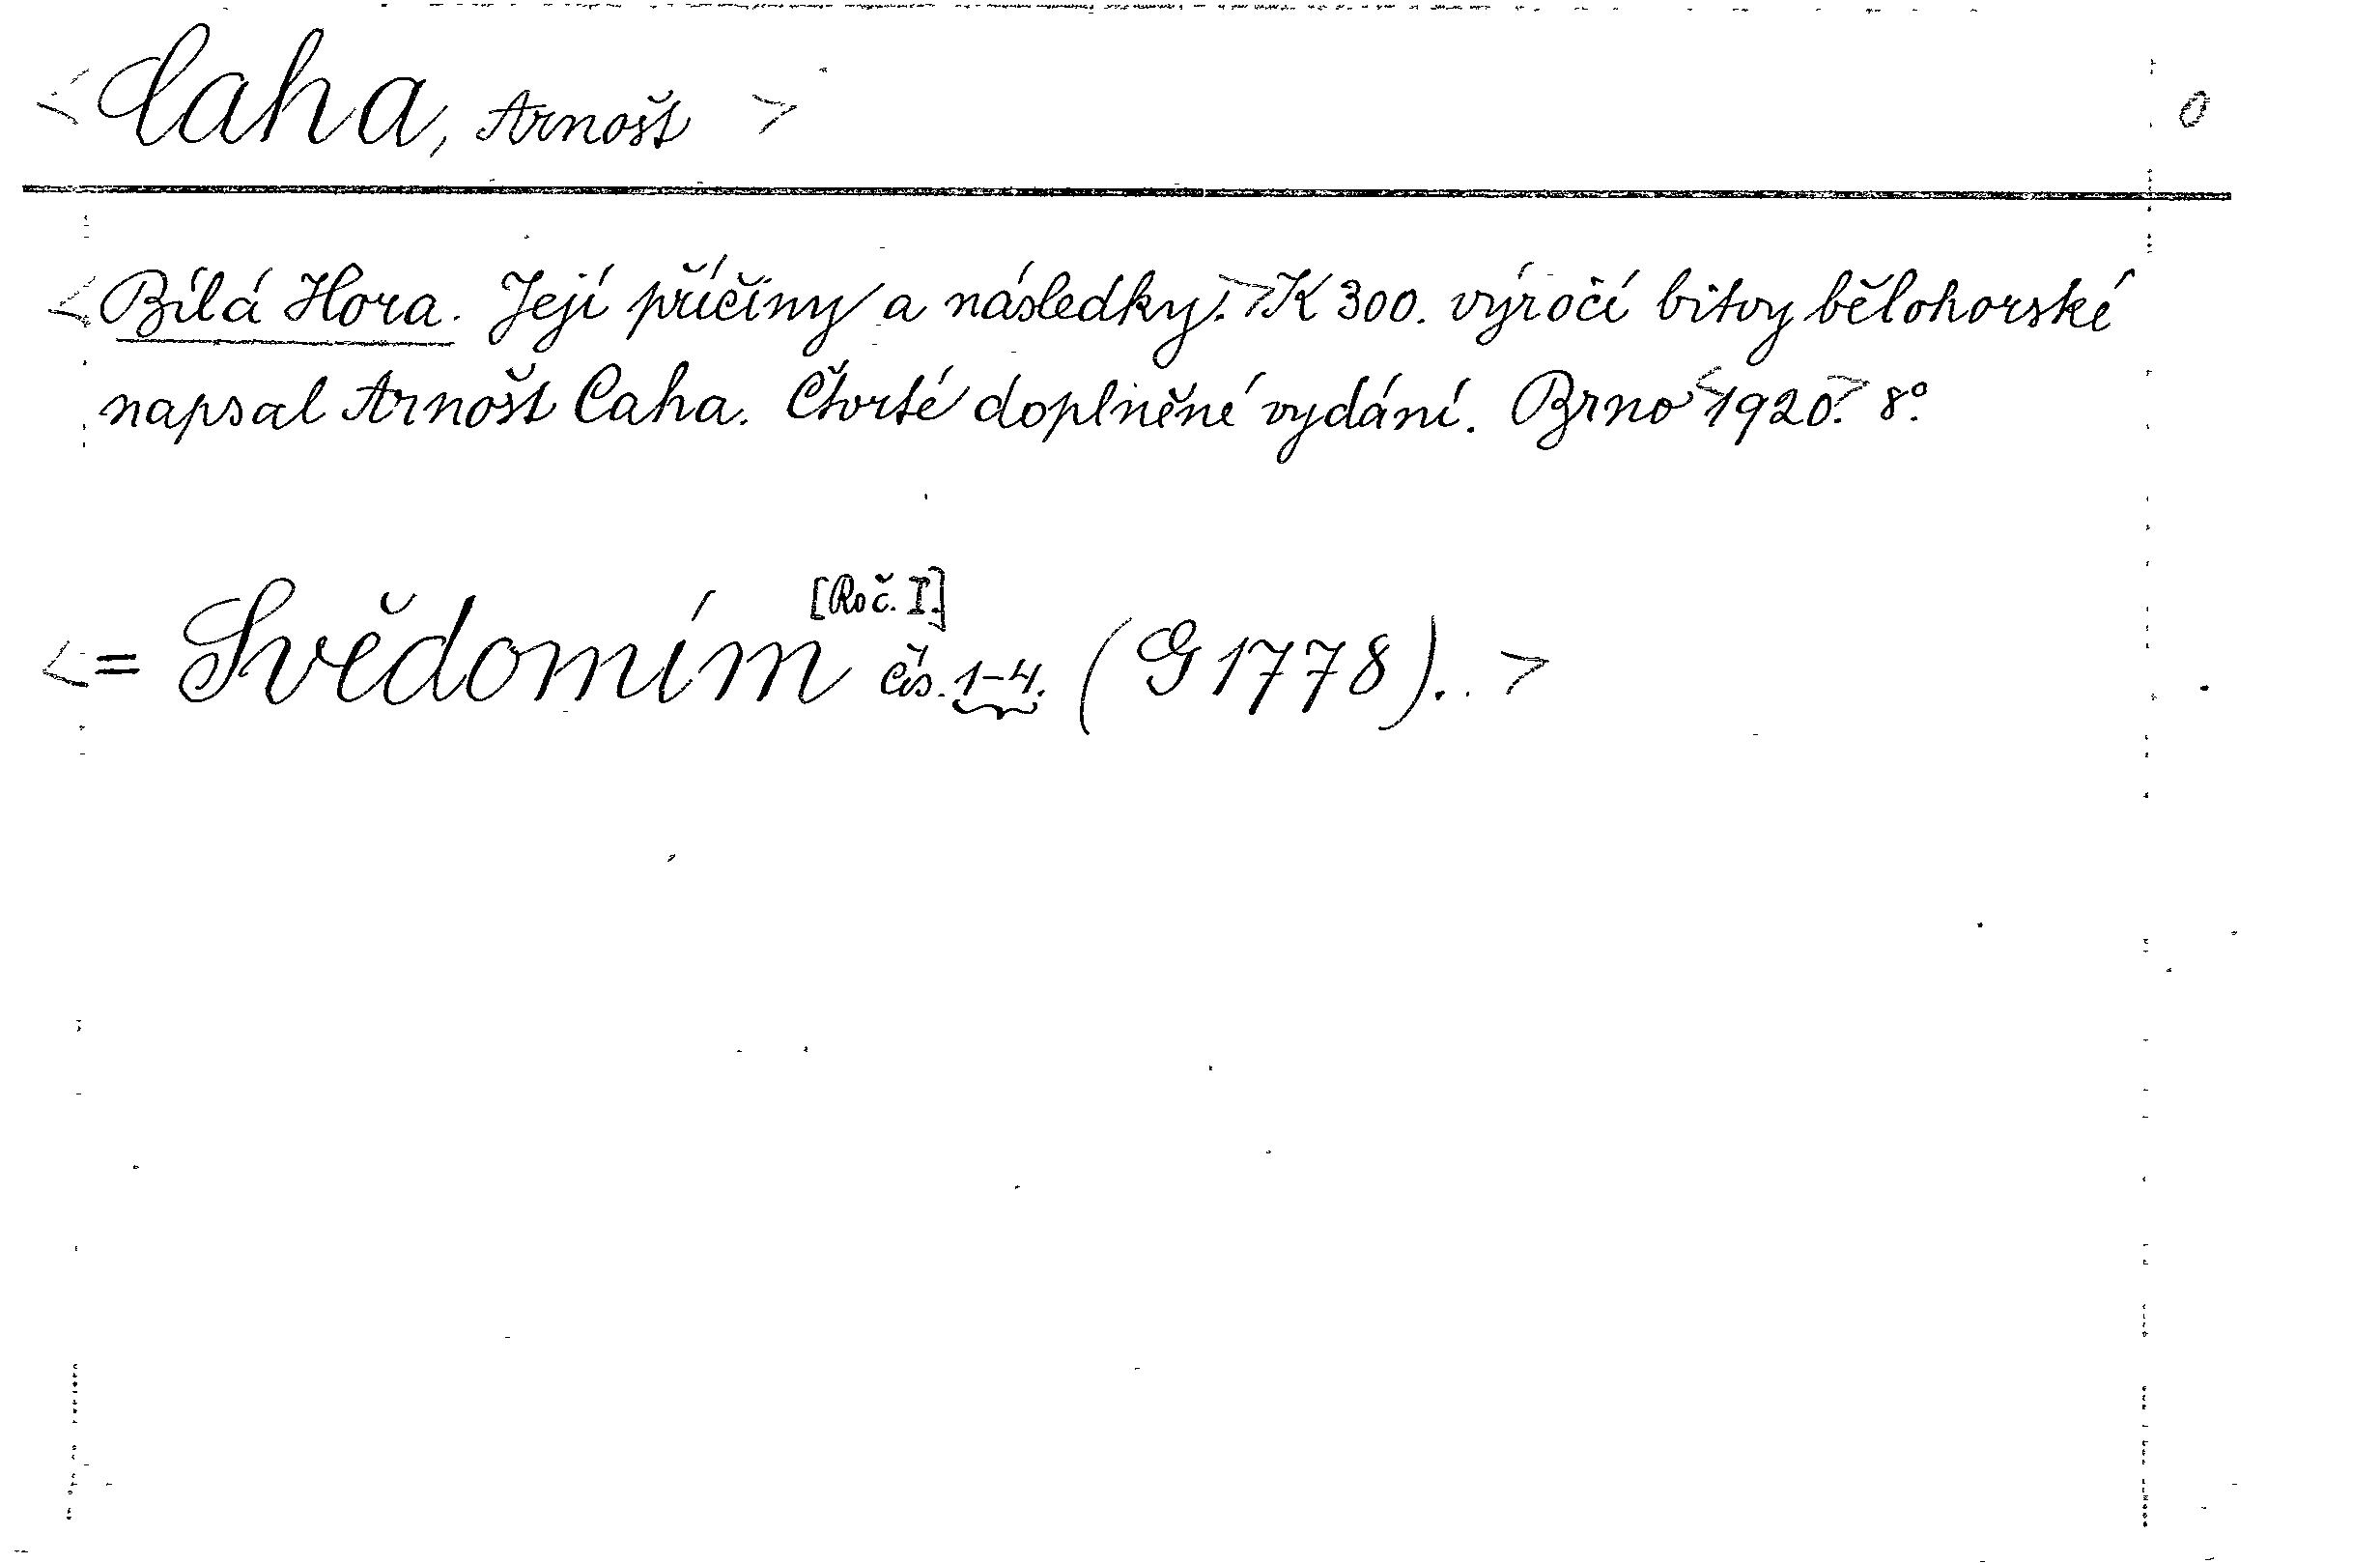 <Caha, Arnošt > 0
<Bílá Hora. Její příčiny a následky.> K 300. výročí bitvy bělohorské
napsal Arnošt Caha. Čtvrté doplněné vydání. Brno <1920>. 8°.
[Roč. I.]
<= Svědomím čís. 1-4. (G 1778). . >